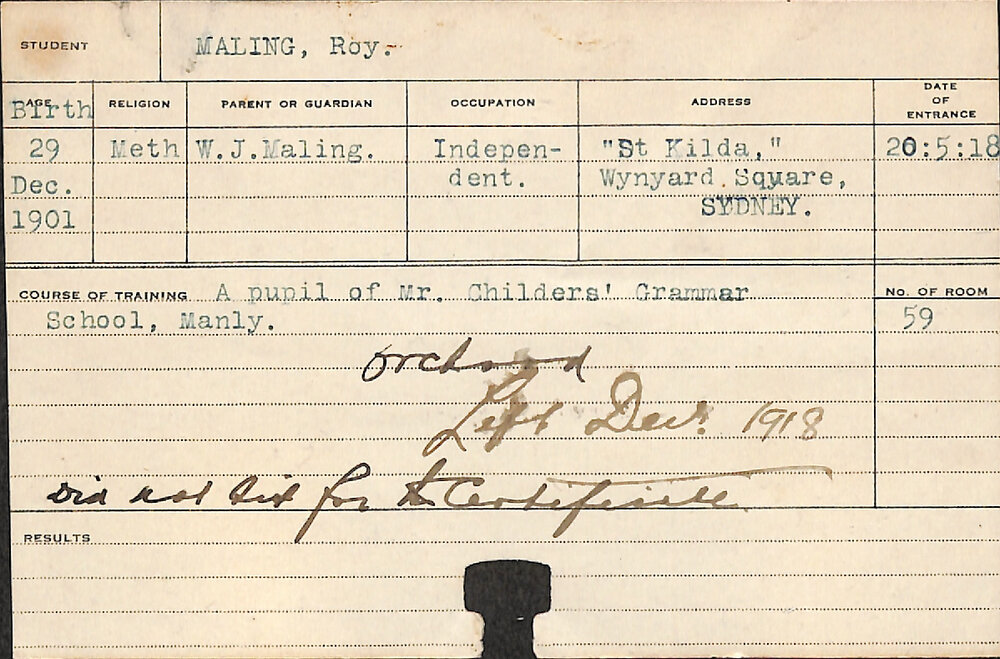 STUDENT MALING, Roy.
AGE Birth RELIGION PARENT OR GUARDIAN OCCUPATION ADDRESS DATE OF ENTRANCE
29 Meth W.J.Maling. Indepen- "St Kilda," 20:5:18
Dec. dent. Wynyard Square,
1901 SYDNEY.
COURSE OF TRAINING A pupil of Mr. Childers' Grammar No. OF ROOM
School, Manly. 59
Orchard
Left Decr. 1918
Did not sit for the Certificate
RESULTS